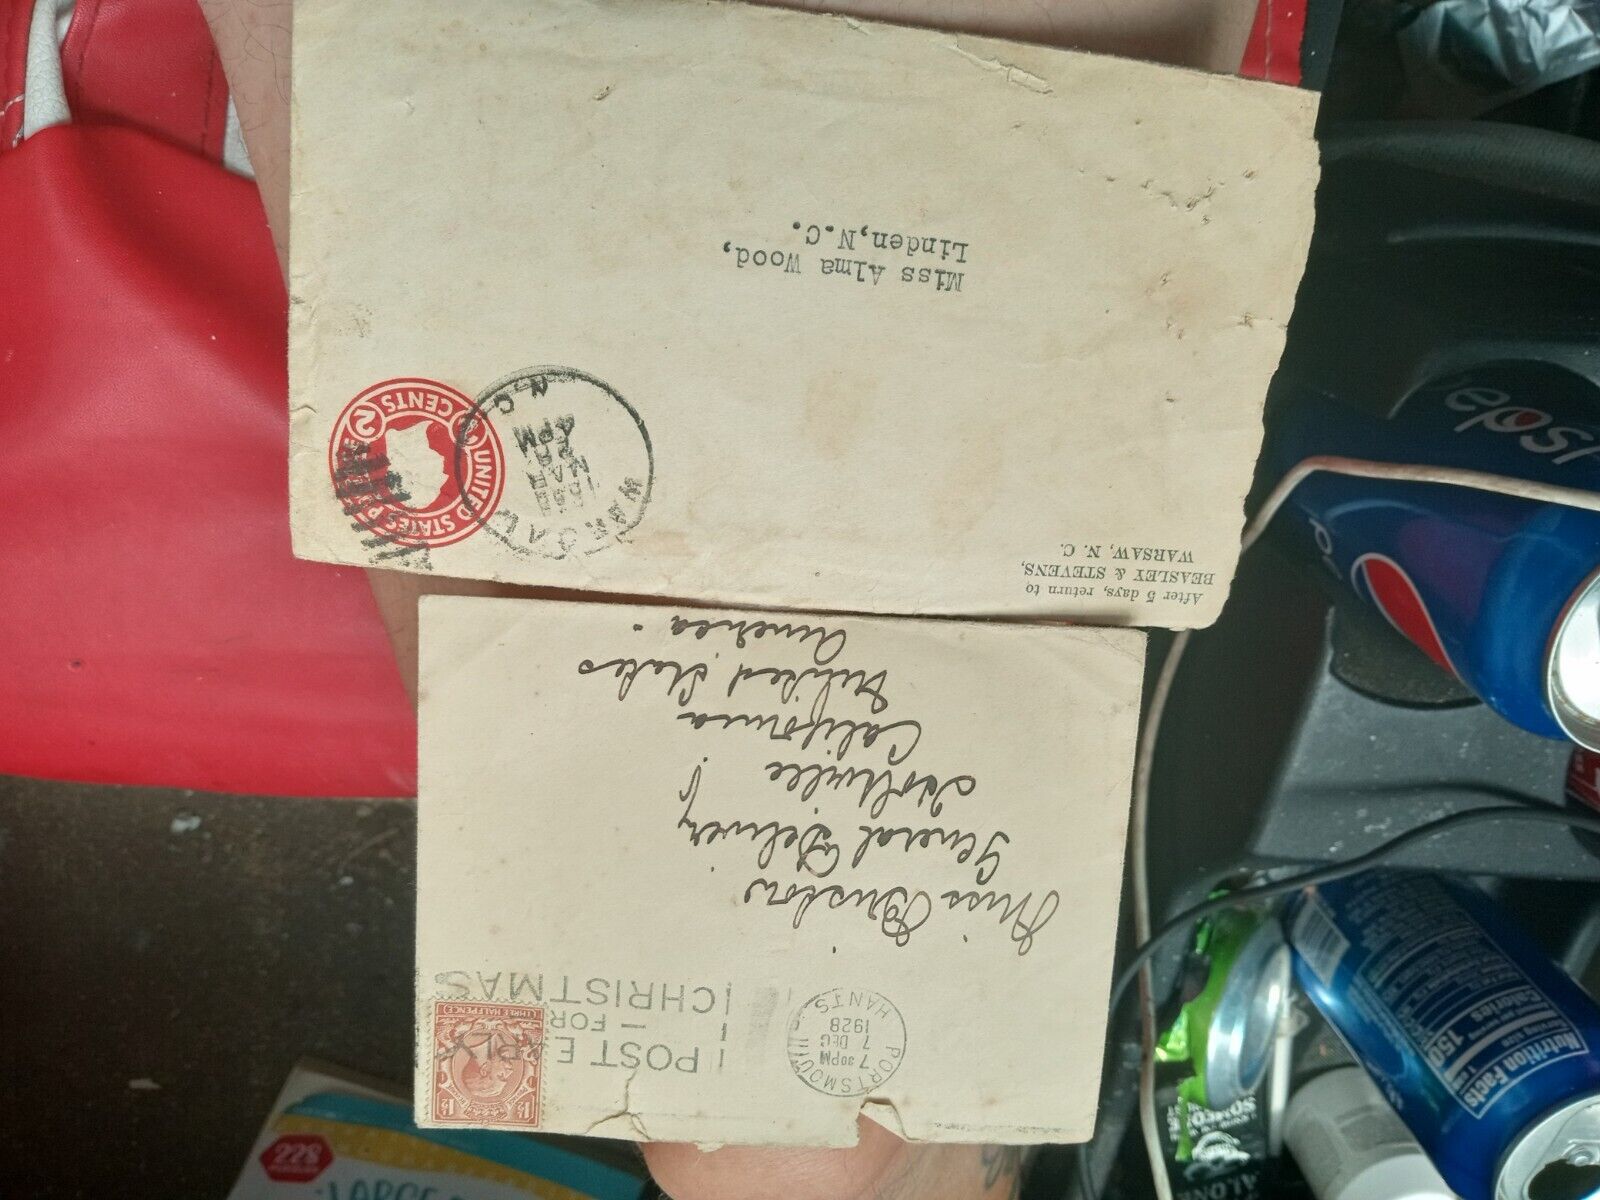 After 5 days, return to
BEASLEY & STEVENS,
WARSAW, N. C.
WARSAW
N.C.
MAR
4 PM
UNITED STATES POSTAGE
2 CENTS 2
Miss Alma Wood,
Linden, N.C.
PORTSMOUTH
7 30PM
7 DEC
1928
HANTS
POST EARLY
— FOR —
CHRISTMAS
1½ 1½
(THREE HALFPENCE)
Miss Bristow
General Delivery
California
United States
America.
pepsi
Nutrition Facts
Calories 150
LARGE